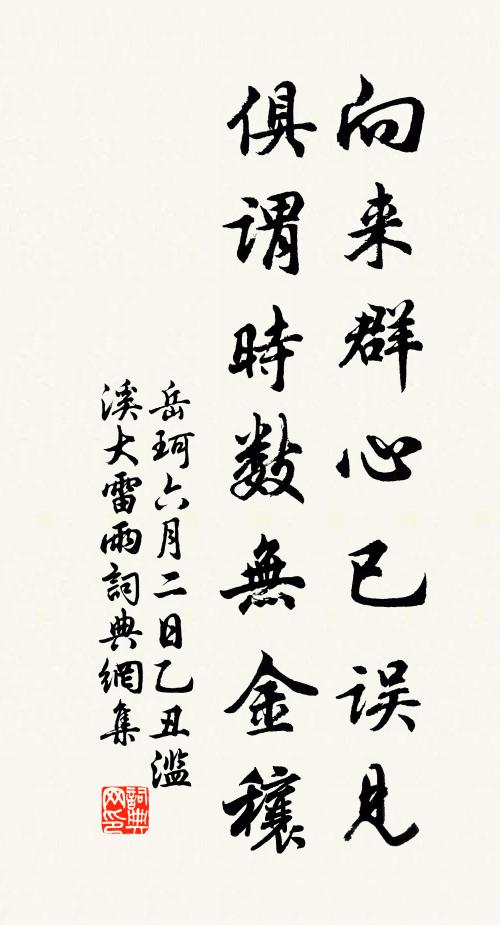 向来群心已误見
俱谓時数無金穰
岳珂六月二日乙丑滥
溪大雷雨詞典網集
詞典网印